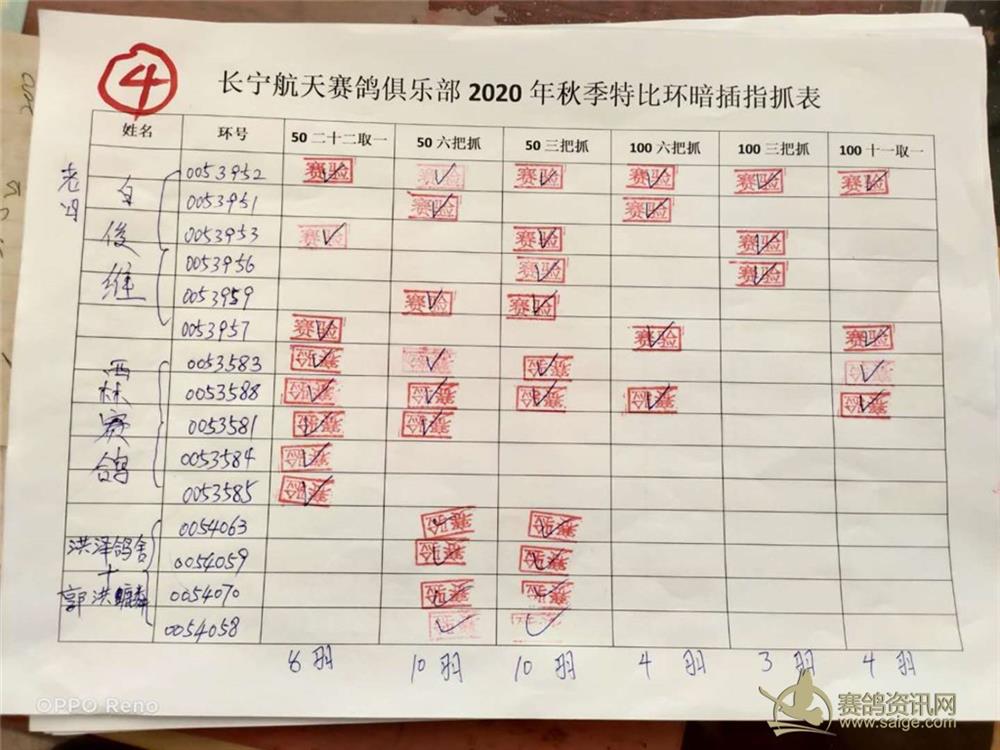 ④
长宁航天赛鸽俱乐部 2020 年秋季特比环暗插指抓表
姓名 环号 50 二十二取一 50 六把抓 50 三把抓 100 六把抓 100 三把抓 100 十一取一
0053952 赛验 赛验 赛验 赛验 赛验 赛验
0053951 赛验 赛验
0053953 赛验 赛验 赛验
0053956 赛验 赛验
0053959 赛验 赛验
0053957 赛验 赛验 赛验
西林赛鸽 0053583 赛验 赛验 赛验 赛验
0053588 赛验 赛验 赛验 赛验 赛验
0053581 赛验 赛验
0053584 赛验
0053585 赛验
洪泽鸽舍 + 郭洪 0054063 赛验 赛验
0054059 赛验 赛验
0054070 赛验 赛验
0054058 赛验 赛验
8羽 10羽 10羽 4羽 3羽 4羽
OPPO Reno
赛鸽资讯网
www.saige.com